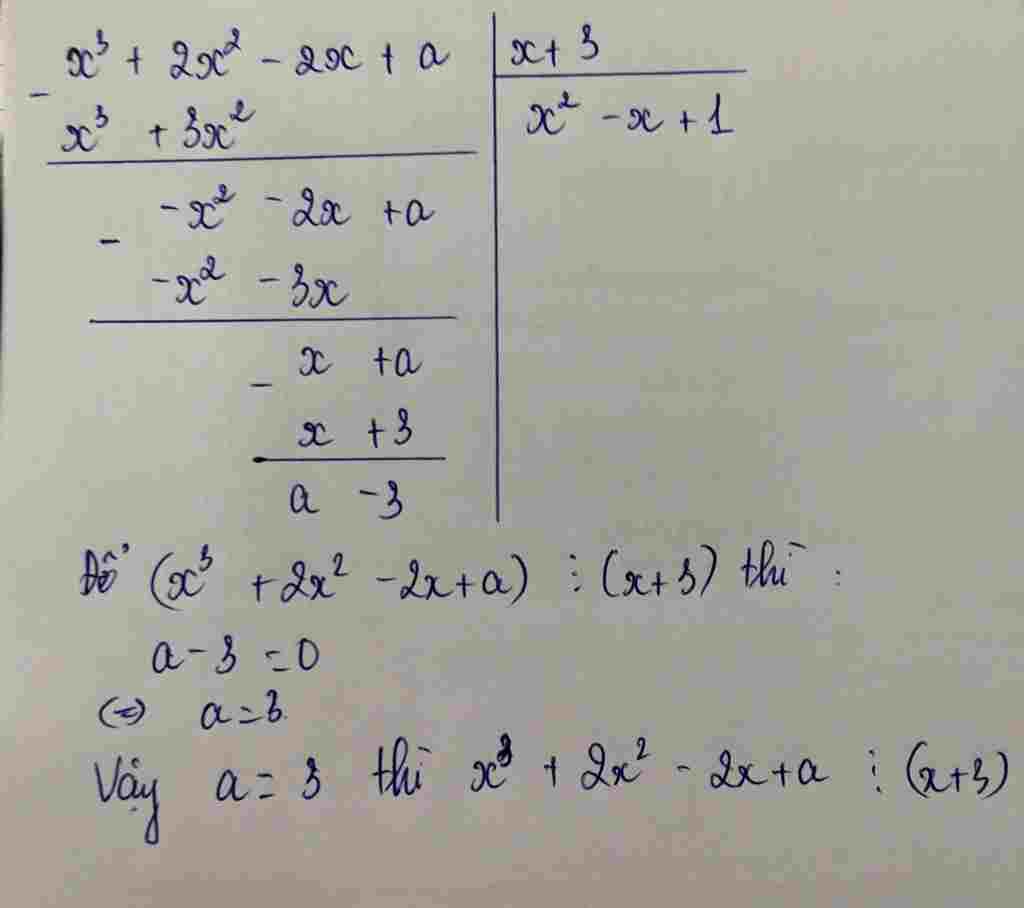 x³ + 2x² - 2x + a | x + 3
- x³ + 3x² | x² - x + 1
-x² - 2x + a
- -x² - 3x
x + a
- x + 3
a - 3
Để (x³ + 2x² - 2x + a) ⋮ (x + 3) thì :
a - 3 = 0
(=) a = 3
Vậy a = 3 thì x³ + 2x² - 2x + a ⋮ (x + 3)